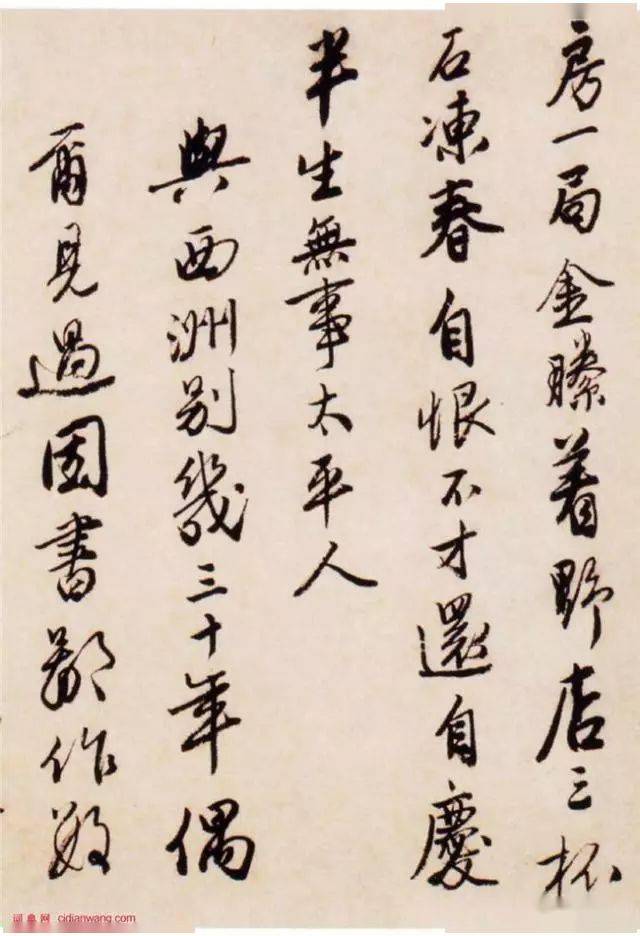 房一局金縢着野店三杯
石凍春自恨不才還自慶
半生無事太平人
與西洲别幾三十年偶
爾見過因書鄙作數
词典网 cidianwang.com